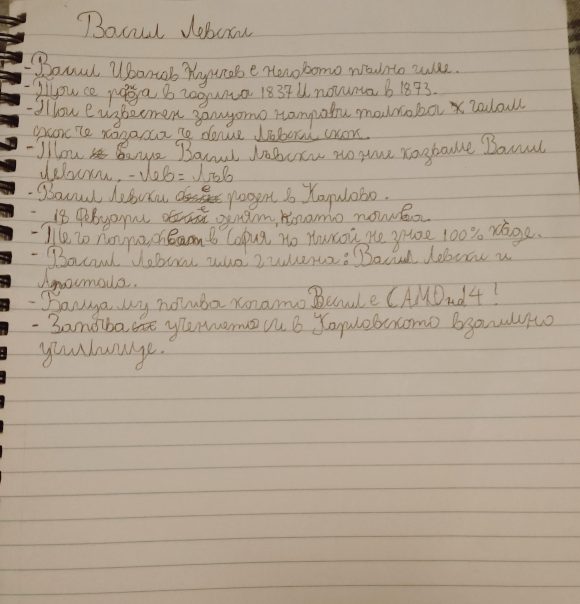 Васил Левски
- Васил Иванов Кунчев е неговото пълно име.
- Той се ражда в година 1837 и почина в 1873.
- Той е известен защото направи толкова голям
скок че казаха че беше Лъвски скок.
- Той беше Васил Лъвски но ние казваме Васил
Левски. - Лев = Лъв
- Васил Левски е роден в Карлово.
- 18 Февуари е денят, когато почива.
- Него пограбват в София но никой не знае 100% къде.
- Васил Левски има 2 имена: Васил Левски и
Апостола.
- Баща му почива когато Васил е САМО на 14!
- Започва учението си в Карловското взаимно
училище.